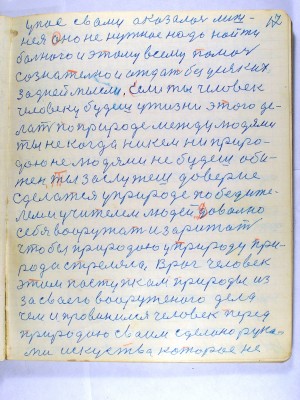 17
упое свами оказалая лиш-
нея оно не нужное надо найти
болного и этому всему помоч
сознателно и отдат без всяких
задней мысли, Если ты человек
человеку будеш у жизни этого де-
лат по природе между людями
ты некогда никем ни приро-
дою не людями не будеш оби-
жен, ты заслужеш доверие
сделатся у природе победите-
лем учителем людей доволно
себя вооружат и заряжат
чтобы природою у природу при-
рода стреляла. Враг человек
этим поступкам природы из
за сваего вооруженого дела
чем и провинился человек перед
природаю сваим сделано рука-
ми искуства которае не